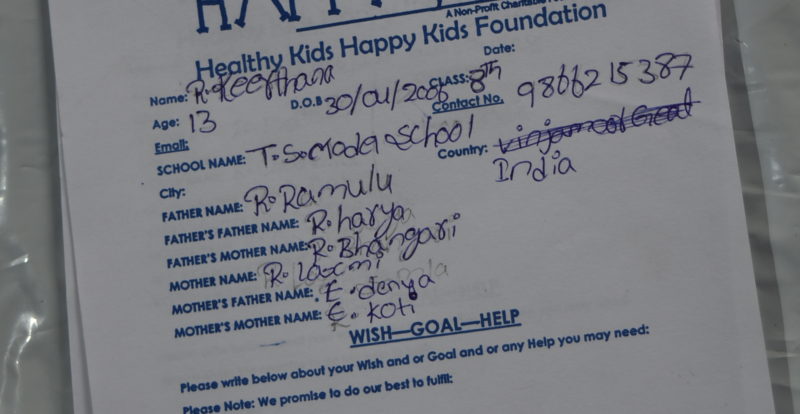 HAPPY
A Non-Profit Charitable
Healthy Kids Happy Kids Foundation
Date:
Name: R.Keerthana
D.O.B 30/04/2006 CLASS: 8th
Age: 13
Contact No. 9866215387
Email:
SCHOOL NAME: T.S.Model School
Country: India
City:
FATHER NAME: R.Ramulu
FATHER'S FATHER NAME: R.harya
FATHER'S MOTHER NAME: R.Bhangari
MOTHER NAME: R.laxmi
MOTHER'S FATHER NAME: E.denya
MOTHER'S MOTHER NAME: E.koti
WISH—GOAL—HELP
Please write below about your Wish and or Goal and or any Help you may need:
Please Note: We promise to do our best to fulfill: